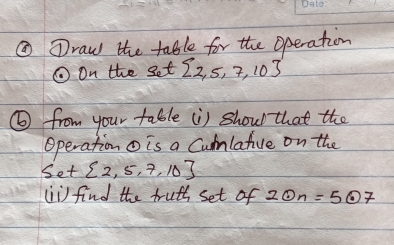 Date
ⓐ Draw the table for the operation
⊙ On the set {2,5,7,10}
ⓑ from your table (i) Show that the
Operation ⊙ is a Cumlative on the
Set {2,5,7,10}
(ii) find the truth set of 2⊙n = 5⊙7